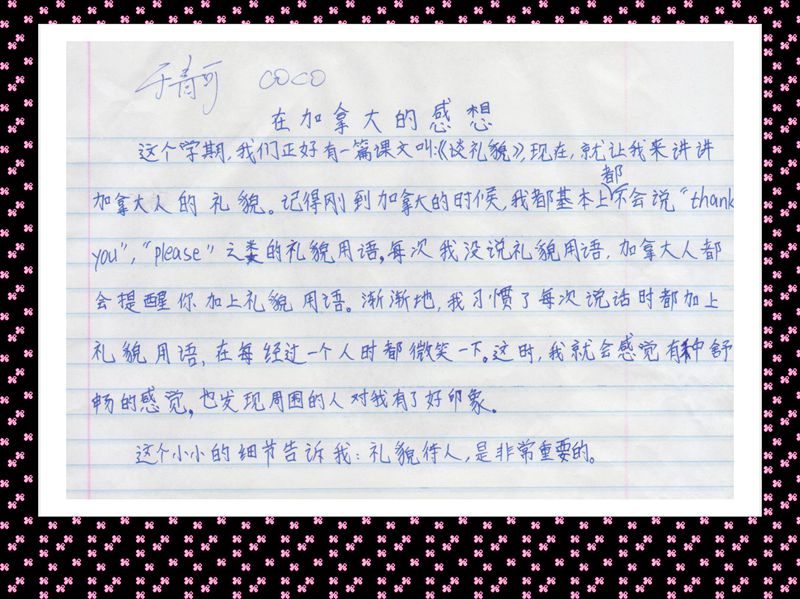 于青可 COCO
在加拿大的感想
这个学期,我们正好有一篇课文叫:《谈礼貌》,现在,就让我来讲讲
加拿大人的礼貌。记得刚到加拿大的时候,我都基本上都不会说“thank
you”,“please”之类的礼貌用语,每次我没说礼貌用语,加拿大人都
会提醒你加上礼貌用语。渐渐地,我习惯了每次说话时都加上
礼貌用语,在每经过一个人时都微笑一下。这时,我就会感觉有种舒
畅的感觉,也发现周围的人对我有了好印象。
这个小小的细节告诉我:礼貌待人,是非常重要的。